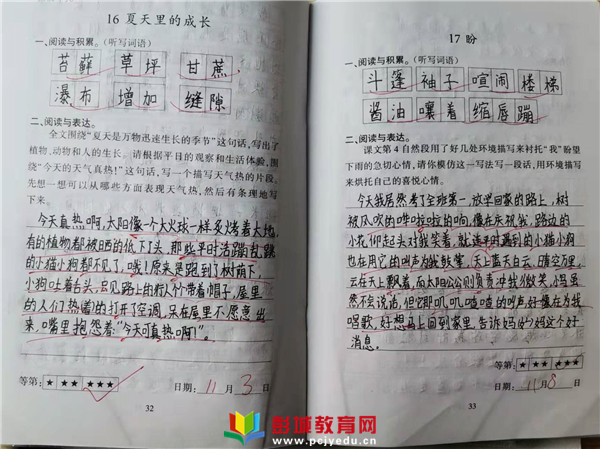 16 夏天里的成长
一、阅读与积累。(听写词语)
苔藓 草坪 甘蔗
瀑布 增加 缝隙
二、阅读与表达。
全文围绕“夏天是万物迅速生长的季节”这句话,写出了
植物、动物和人的生长。请根据平日的观察和生活体验,围
绕“今天的天气真热!”这句话,写一个描写天气热的片段。
先想一想可以从哪些方面表现天气热,然后有条理地写
下来。
今天真热啊,太阳像一个大火球一样炙烤着大地,
有的植物都被晒的低下了头,那些平时活蹦乱跳
的小猫小狗都不见了,哦!原来是跑到了树荫下,
小狗吐着舌头,只见路上的行人个个带着帽子,屋里
的人们热的打开了空调,呆在屋里不愿意出
来,嘴里抱怨着:“今天可真热啊!”。
等第: ★ ★★ ★★★
日期: 11 月 3 日
32
17 盼
一、阅读与积累。(听写词语)
斗篷 袖子 喧闹 楼梯
酱油 嚷着 缩唇 蹦
二、阅读与表达。
课文第4自然段用了好几处环境描写来衬托“我”盼望
下雨的急切心情,请你模仿这一写法写一段话,用环境描写
来烘托自己的喜悦心情。
今天我居然考了全班第一,放学回家的路上,树
被风吹的哗啦啦的响,像在庆祝我,路边的
小花仰起头对我笑着,就连平时遇到的小猫小狗
也在用它的叫声为我鼓掌,天上蓝天白云,晴空万里,
云在天上飘着,而太阳公公则负责冲我微笑,小鸟虽
然不会说话,但它那叽叽喳喳的叫声好像在为我
唱歌,好想马上回到家里,告诉妈妈这个好
消息。
等第: ★ ★★ ★★★
日期: 11 月 8 日
33
彭城教育网
www.pcjyedu.cn